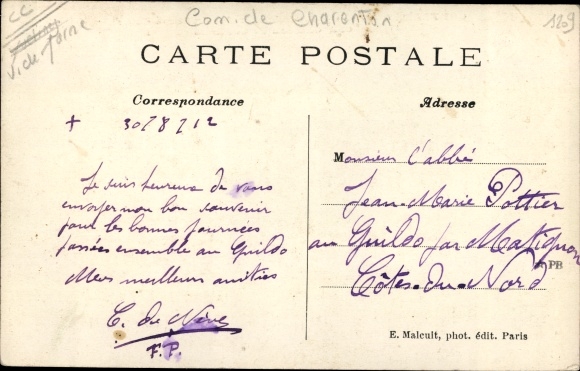 CC
V. de Marne
Com. de Charenton
1209
CARTE POSTALE
Correspondance
Adresse
+ 30/8/12
Je suis heureux de vous
envoyer mon bon souvenir
pour les bonnes journées
passées ensemble au Guildo
Mes meilleurs amitiés
C. de
F.P.
Monsieur l'abbé
Jean-Marie Pottier
au Guildo par Matignon
Côtes-du-Nord
PB
E. Malcuit, phot. édit. Paris